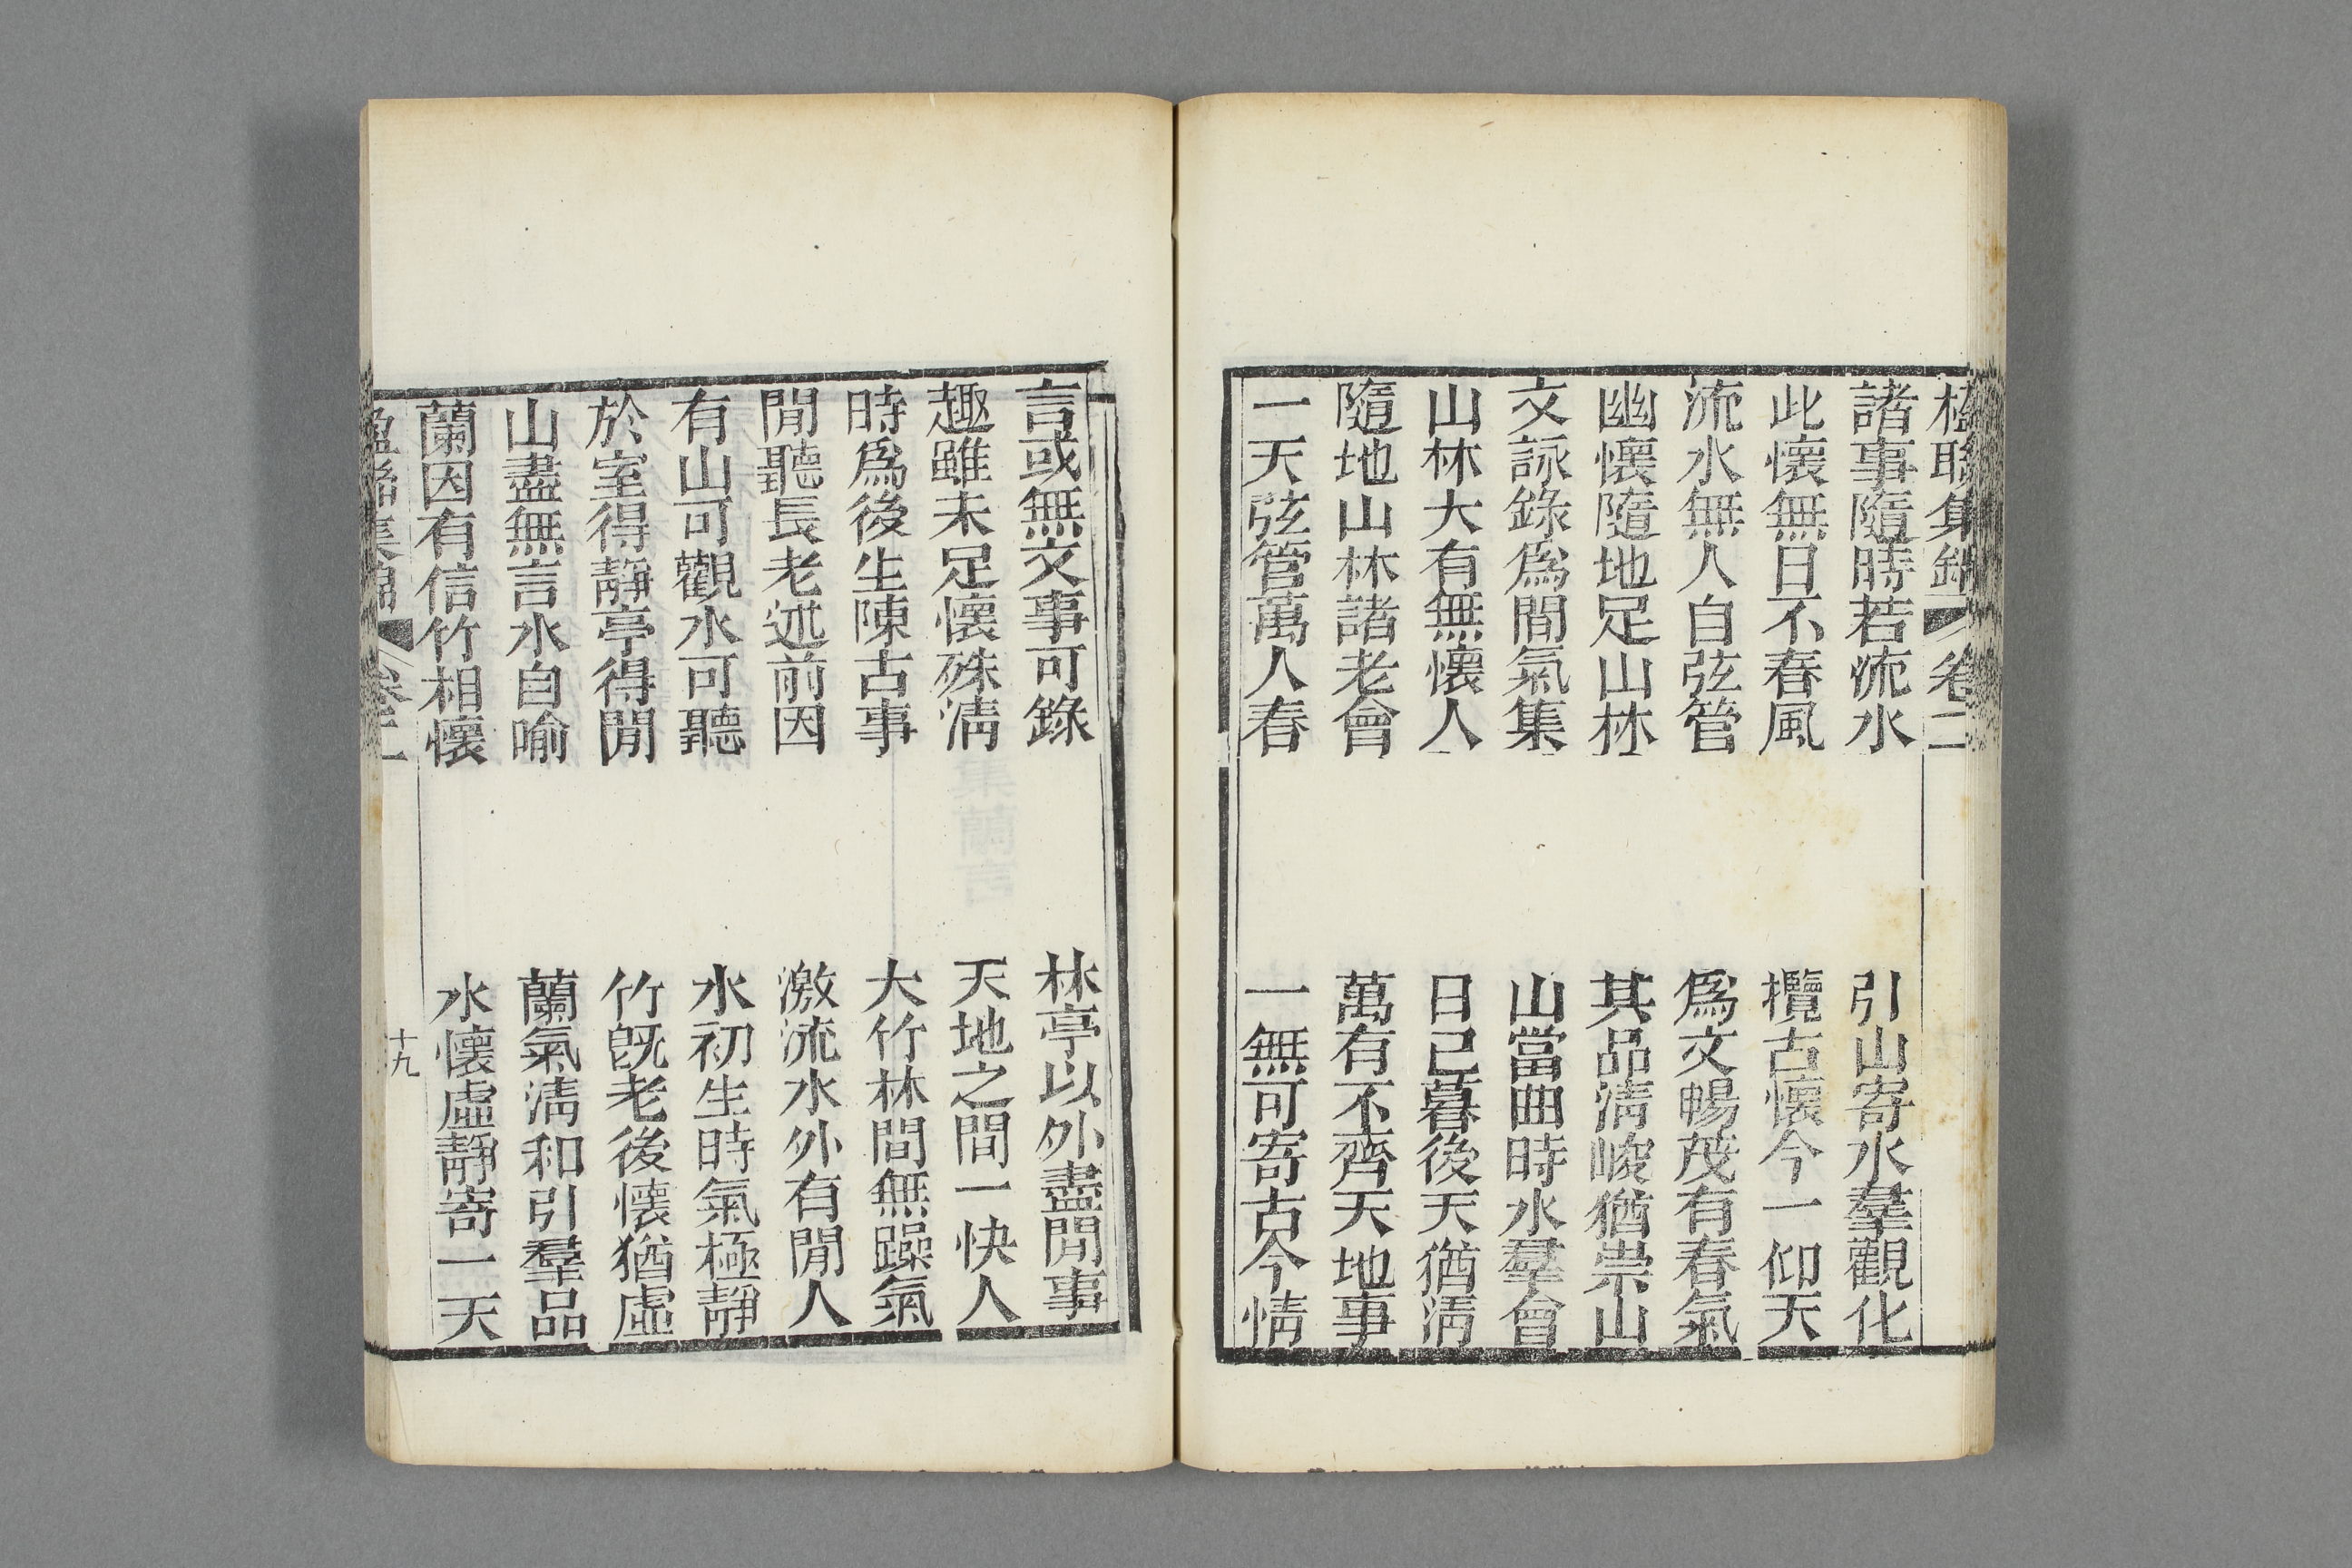 楹聯集錦 卷二
諸事隨時若流水 引山寄水羣觀化
此懷無日不春風 攬古懷今一仰天
流水無人自弦管 爲文暢茂有春氣
幽懷隨地足山林 其品淸峻猶崇山
文詠錄爲閒氣集 山當曲時水羣會
山林大有無懷人 日已暮後天猶淸
隨地山林諸老會 萬有不齊天地事
一天弦管萬人春 一無可寄古今情
言或無文事可錄 林亭以外盡閒事
趣雖未足懷殊淸 天地之間一快人
時爲後生陳古事 大竹林間無躁氣
閒聽長老述前因 激流水外有閒人
有山可觀水可聽 水初生時氣極靜
於室得靜亭得閒 竹旣老後懷猶虛
山盡無言水自喻 蘭氣淸和引羣品
蘭因有信竹相懷 水懷虛靜寄一天
楹聯集錦 卷二 十九